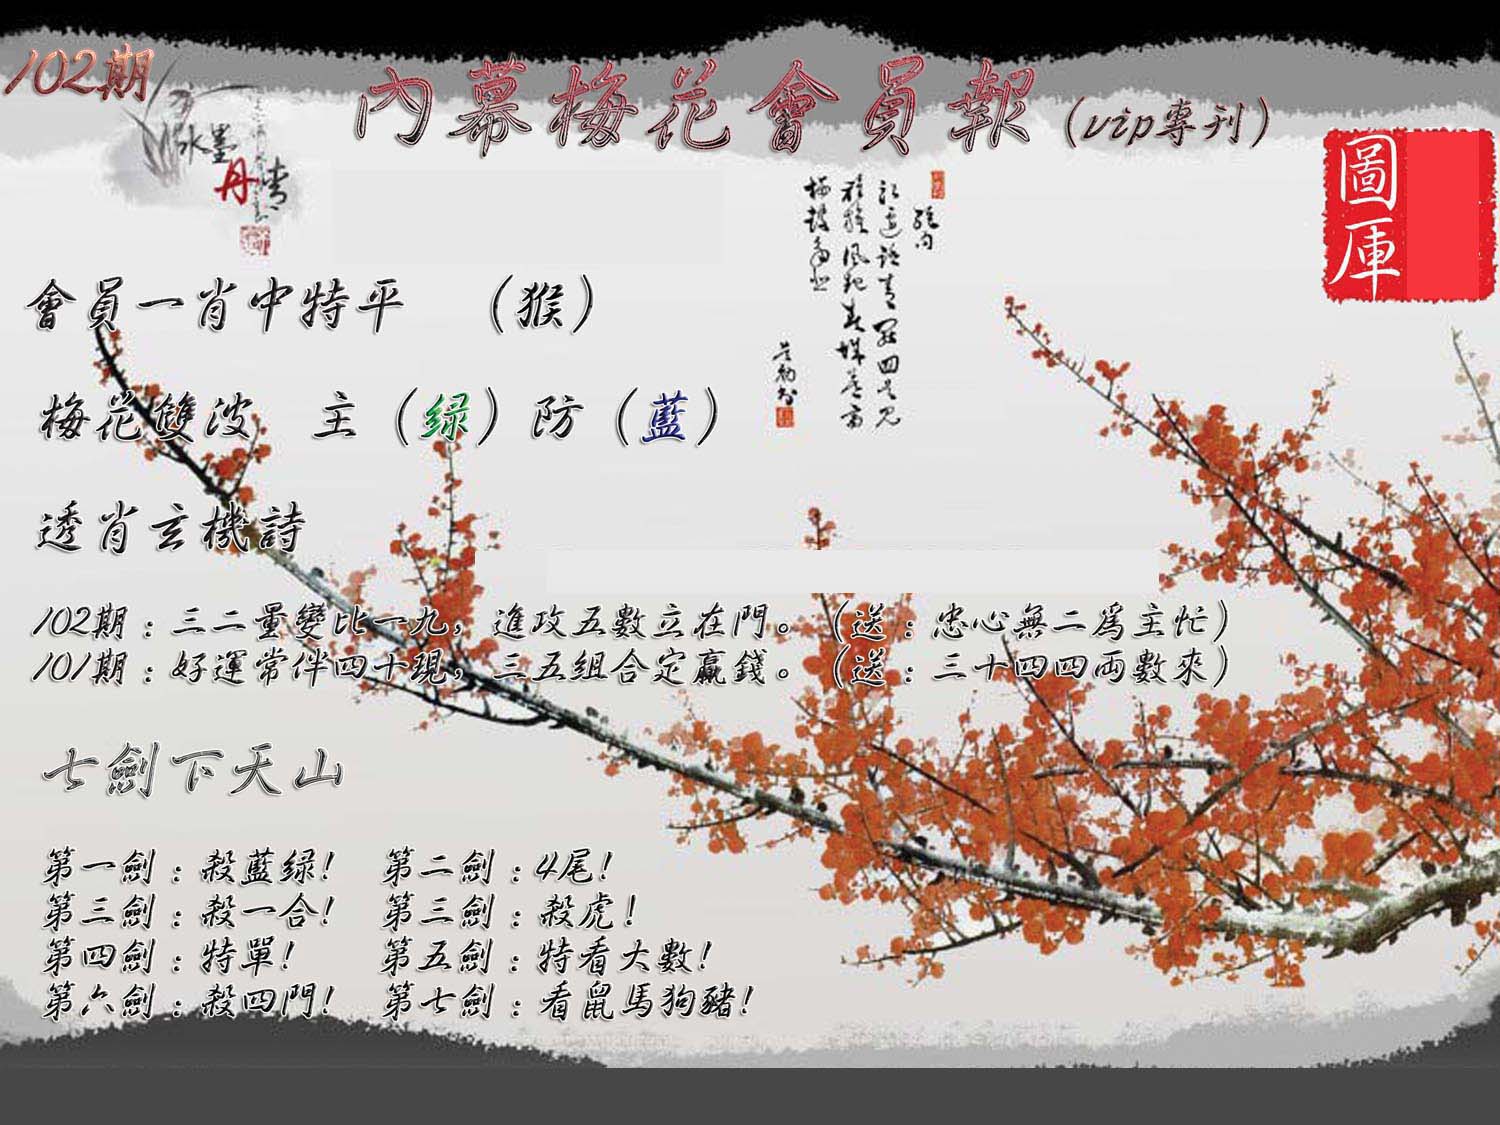 102期
內幕梅花會員報(vip專刊)
水墨
丹青
圖
庫
會員一肖中特平 (猴)
梅花雙波 主(绿)防(藍)
透肖玄機詩
102期:三二量變比一九,進攻五數立在門。(送:忠心無二為主忙)
101期:好運常伴四十現,三五組合定贏錢。(送:三十四四両數來)
七劍下天山
第一劍:殺藍绿! 第二劍:4尾!
第三劍:殺一合! 第三劍:殺虎!
第四劍:特單! 第五劍:特看大數!
第六劍:殺四門! 第七劍:看鼠馬狗豬!